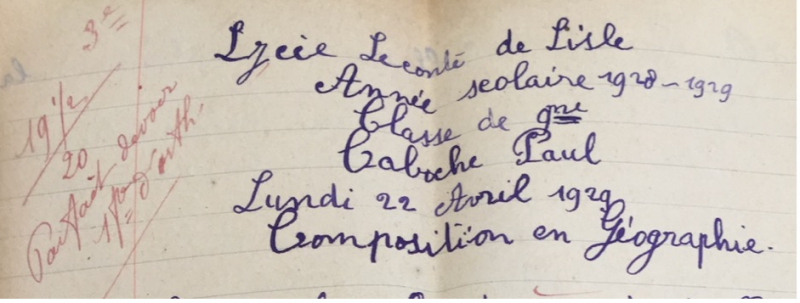 3e
19 1/2
20
Parfait devoir
1 faute d'orth.
Lycée Leconte de Lisle
Année scolaire 1928-1929
Classe de 9me
Caboche Paul
Lundi 22 Avril 1929
Composition en Géographie.